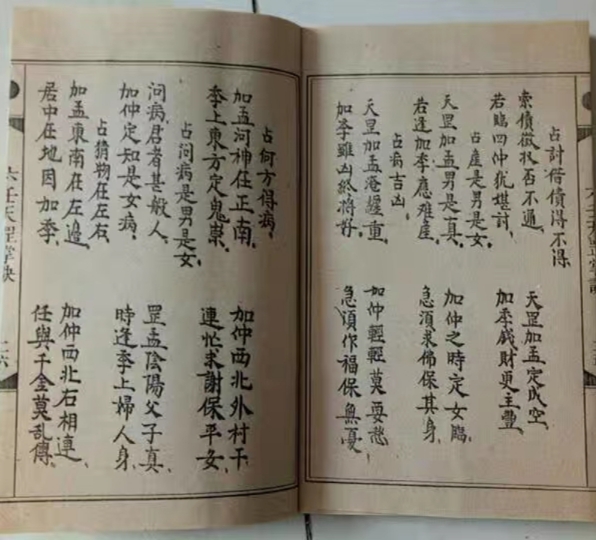 占討借債得不得
索債徵收否不通、 天罡加孟定成空、
若臨四仲猶堪討、 加季錢財更主豐、
占產是男是女、
天罡加孟男是真、 加仲之時定女臨、
若逢加季應难產、 急須求佛保其身、
占病吉凶
天罡加孟淹纏重、 加仲輕輕莫要愁
加季雖凶終將好、 急須作福保無憂、
占何方得病、
加孟河神在正南、 加仲西北外村干
季上東方定鬼祟、 連忙求謝保平安
占問病是男是女、
問病君者甚敏人、 罡孟陰陽父子真、
加仲定知是女病、 時逢季上婦人身、
占猜物在左右、
加孟東南在左邊、 加仲西北右相連、
居中在地因加季、 任與千金莫乱傳、
六壬天罡掌訣 二六